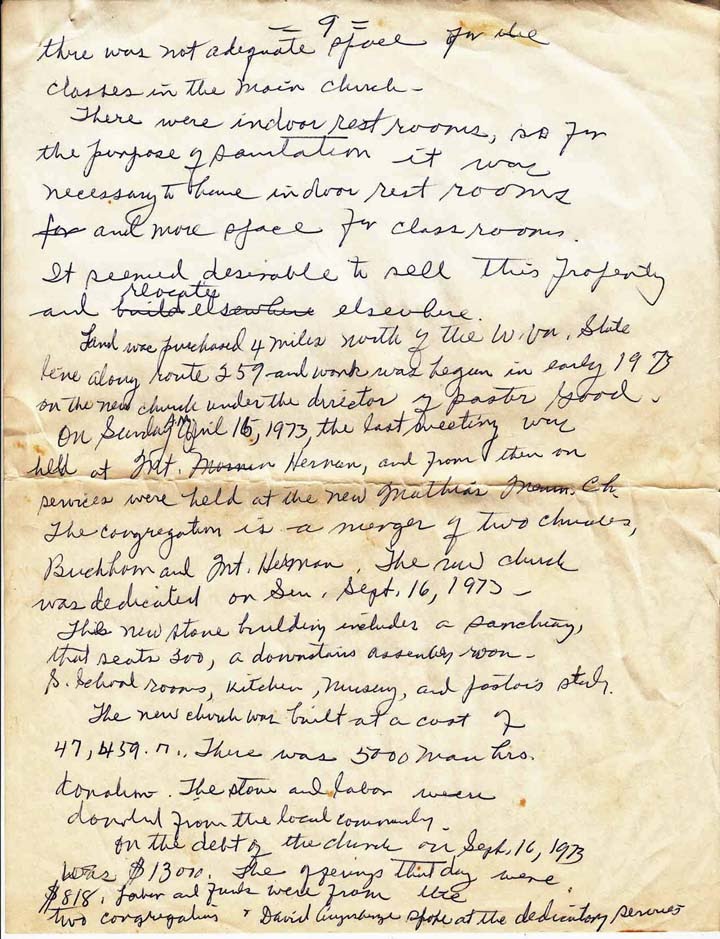 = 9 =
there was not adequate space for the
classes in the main church -
There were indoor rest rooms, so for
the purpose of sanitation it was
necessary to have indoor rest rooms
for and more space for class rooms.
It seemed desirable to sell this property
relocate
and build elsewhere elsewhere.
Land was purchased 4 miles north of the W.Va. State
line along route 259 and work was begun in early 1973
on the new church under the director of pastor Good.
On Sunday April 15, 1973, the last meeting was
held at Mt. Hernan, and from then on
services were held at the new Mathias Menn. Ch.
The congregation is a merger of two churches,
and Mt. Herman. The new church
was dedicated on Sun. Sept. 16, 1973 -
This new stone building includes a sanctuary,
that seats 300, a downstairs assembly room -
S. School rooms, kitchen, nursery, and pastors study.
The new church was built at a cost of
47,459. There was 5000 man hrs.
donation. The stone and labor were
donated from the local community.
on the debt of the church on Sept. 16, 1973
was $13000. The offerings that day were
$818. Labor and funds were from the
two congregations David spoke at the dedicatory services